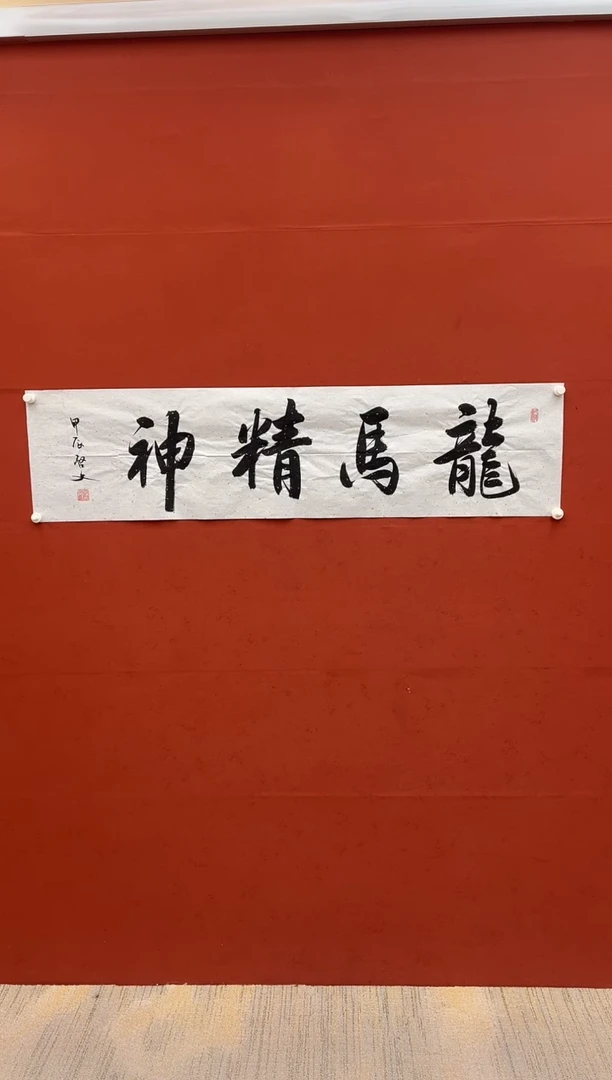 龍馬精神
甲辰啓文